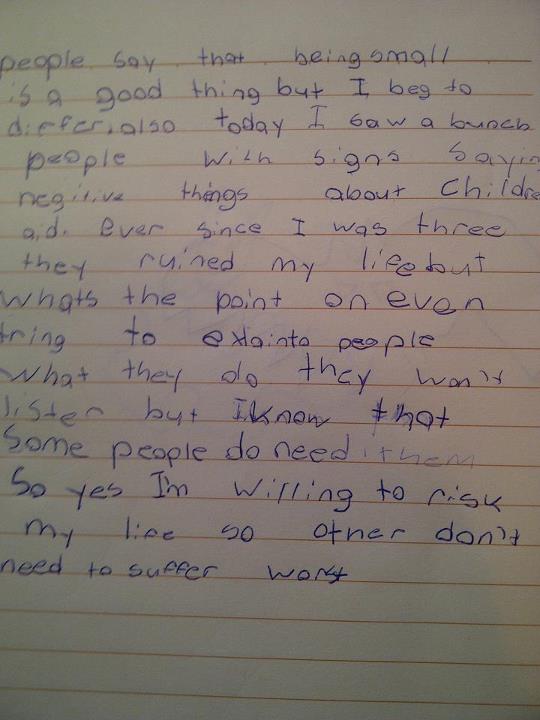 people say that being small
is a good thing but I beg to
differ, also today I saw a bunch
people with signs saying
negitive things about Childre
aid. Ever since I was three
they ruined my life but
whats the point on even
tring to exlainto people
what they do they won't
listen but I know that
Some people do need them
So yes I'm willing to risk
my life so other don't
need to suffer